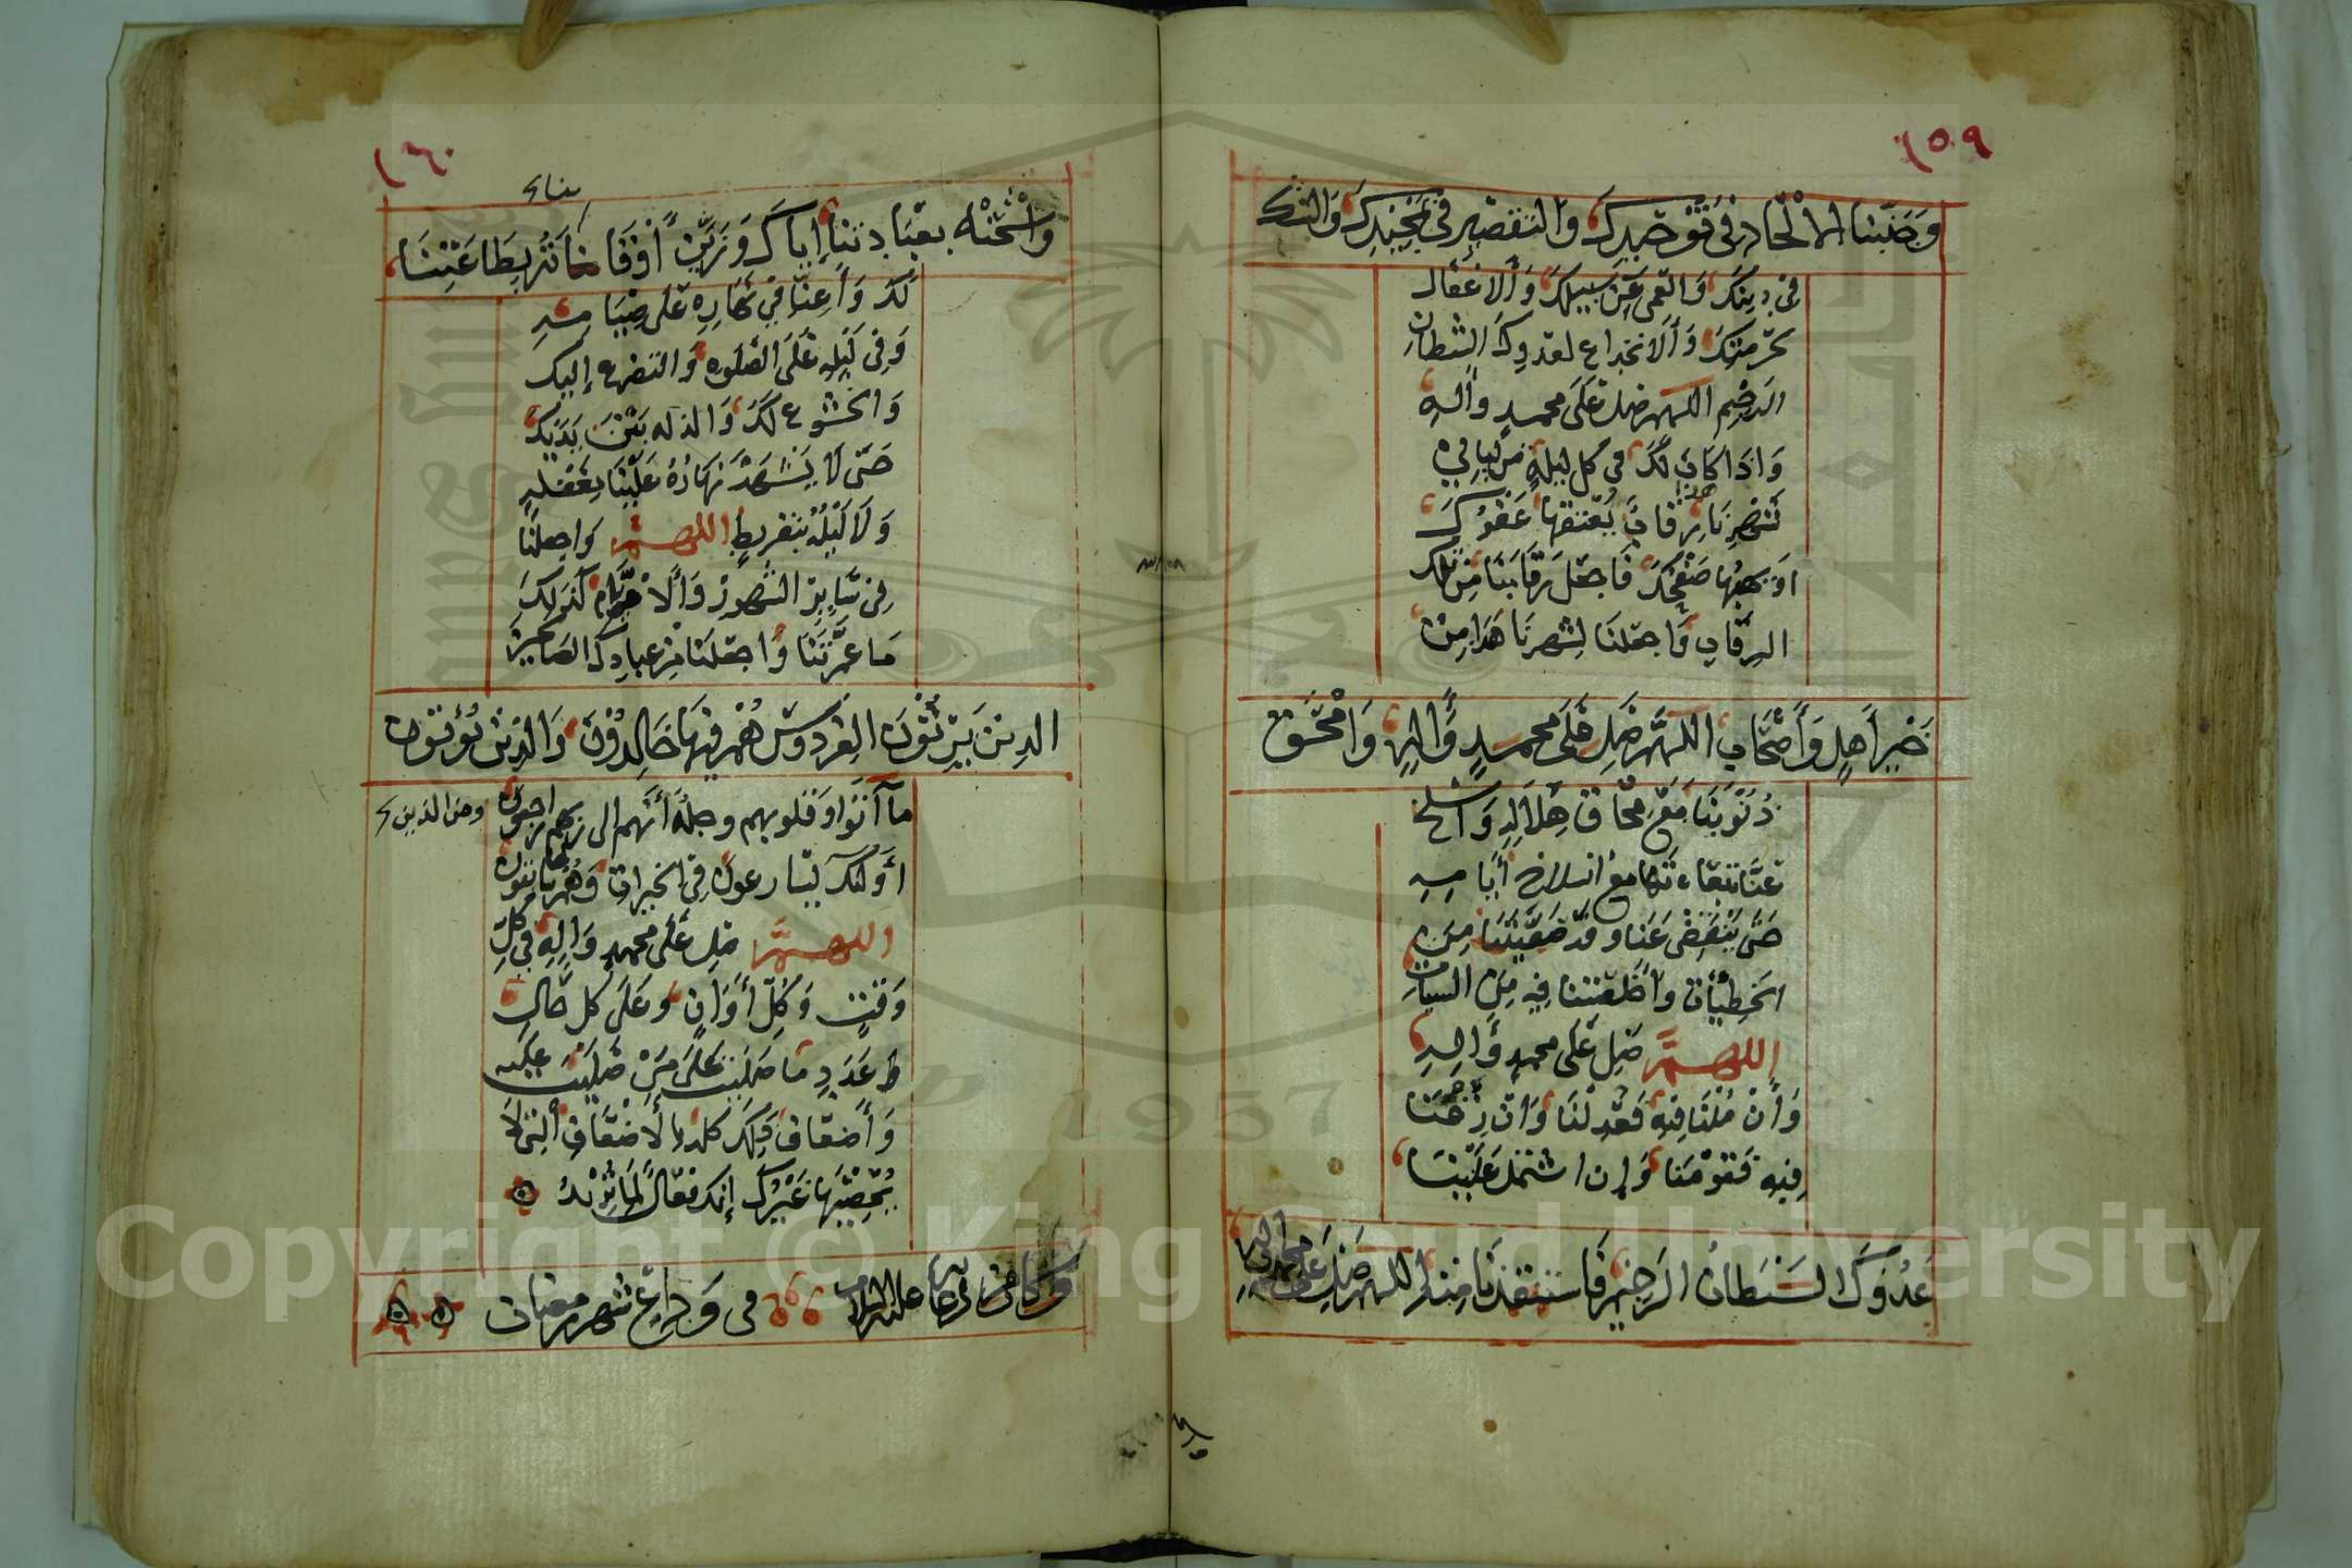 ١٥٩
وَجَنِّبنا الالْحَاد فى تَوْحيدِكَ والتقصِير في تَمْجِيدِكَ وَالشك
فى دِينِكَ وَالعمى عَن سَبيلِكَ وَالاغفال
لحرمتِكَ وَألانخداع لعدوكَ الشيطان
الرجيم اللهم صل عَلَى محمدٍ وآلِهِ
وَاذَا كَانَ لَكَ فى كل ليلةٍ من ليالي
شَهْرِنَا هذا رِقابٌ يُعتقها عَفوُكَ
اوَ يهبُها صَفحُكَ فَاجعَل رقابَنَا مِن تلك
الرِقابِ وَاجعَلنَا لِشهرنَا هَذَا مِن
خَيرِ أَهلٍ وَأَصْحَابٍ اللهم صَلِ عَلَى محمدٍ وَالِهِ وَامْحَق
ذُنُوبَنَا مَعَ مِحَاق هِلَالِهِ وَاسْلخ
عَنَّا تبعَاتَها مع انسلاخ أيامِهِ
حَتَّى يَنقَضى عَنا وقد صَفَّيتَنَا مِن
الخَطِيئَات وأخلَصْتنا فِيه مِنَ السيات
اللهم صَلِ عَلَى محمدٍ وَالِهِ
وَأَنْ مُلنَا فِيهِ فَعَدِلنَا وَان زُغنا
فِيهِ فَقومْنا وَإن اشتمل عَلَيْنَا
عَدُوّكَ الشَيطَانُ الرَجِيم فَاستَنقِذْنَا مِنه اللهم صَلِ عَلى محمد وَالِهِ
١٦٠
وَاشْحَنْه بعِبَادتِنَا إيَاكَ وَزَيِّن أَوْقَاتَهُ بِطَاعَتِنَا
لَكَ وَأَعِنّا فِي نَهَارِهِ عَلَى صِيَامِهِ
وَفِى لَيلِهِ عَلَى الصَلَوه وَالتضرع إليك
وَالخشوع لَكَ وَالذله بَيْنَ يَدَيْكَ
حَتّى لَا يَشهَدَ نهَارُهُ عَلَيْنَا بِغَفلةٍ
وَلَا لَيْلُهُ بتفريطٍ اللهم وَاجعلنَا
فِى سَايِر الشُهُور وَالأيَّام كَذَلِكَ
مَا عَمَّرتَنَا وَاجعَلنَا مِن عبادِكَ الصَالحِينَ
الذِينَ يَرِثُونَ الفِردوسَ هُم فِيهَا خَالِدُونَ وَالَّذِينَ يُؤتُونَ
مآ آتَوَا وَقلوبهم وجلةٌ أَنَّهم الى ربهم راجعون
ومن الذين
أُولَئِكَ يُسَارعونَ فِى الخيرات وَهُم لها سابقون
اللهم صَلِ عَلَى محمدٍ وَالِهِ فِي كلِّ
وَقتٍ وَكُلِّ أَوَانٍ وعَلَى كل حَالٍ
عَدَدِ مَا صَلَيت عَلَى مَنْ صَلَيتَ عليه
وَأَضعَافَ ذلِكَ كله بالاضْعَافِ التِى لَا
يُحْصِيهَا غَيْرُكَ إنك فعّالٌ لِمَا تُرِيْدُ
وَكانَ مِن دُعَائه عليه السلام فى وَدَاعِ شهر رمضان